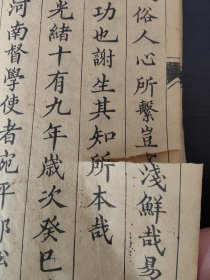 俗人心所繫豈
淺鮮哉易
功也謝生其知所本哉
光緒十有九年歲次癸巳
河南督學使者宛平邵松